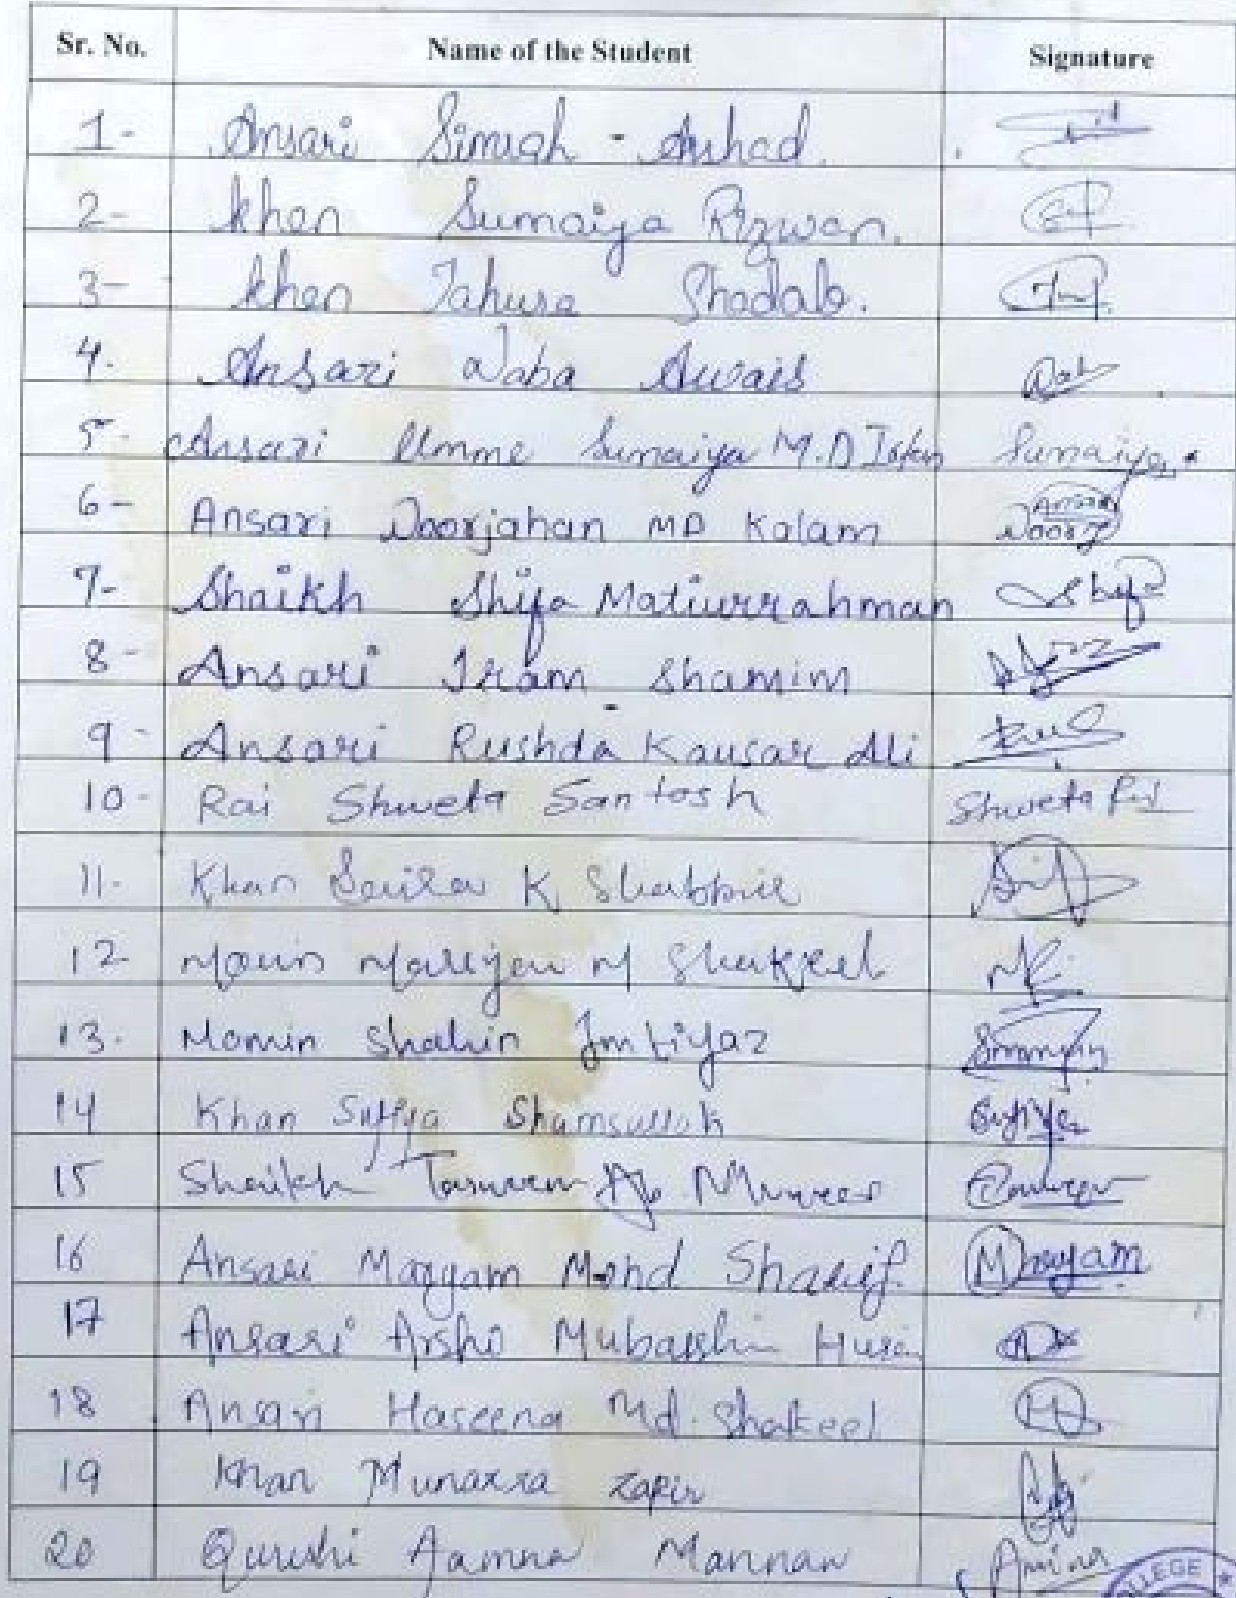 Sr. No. Name of the Student Signature
1- Ansari Simrah - Arshad.
2- Khan Sumaiya Rizwan.
3- Khan Tahura Shadab.
4. Ansari Naba Awais
5- Ansari Umme Sumaiya M.D Sumaiya
6- Ansari Noorjahan MD Kalam Ansari Noorj
7- Shaikh Shifa Matiurrahman Shifa
8- Ansari Iram Shamim
9- Ansari Rushda Kausar Ali
10- Rai Shweta Santosh Shweta Rai
11- Khan K Shabbir
12- Momin Mariyam M Shakeel
13. Momin Shahin Imtiyaz
14 Khan Sufiya Shamsullah Sufiya
15 Shaikh
16 Ansari Maryam Mohd Sharif. Maryam
17 Ansari Arsho
18 Ansari Haseena Md. Shakeel
19 Khan Munazza
20 Qureshi Aamna Mannan Amina
LLEGE